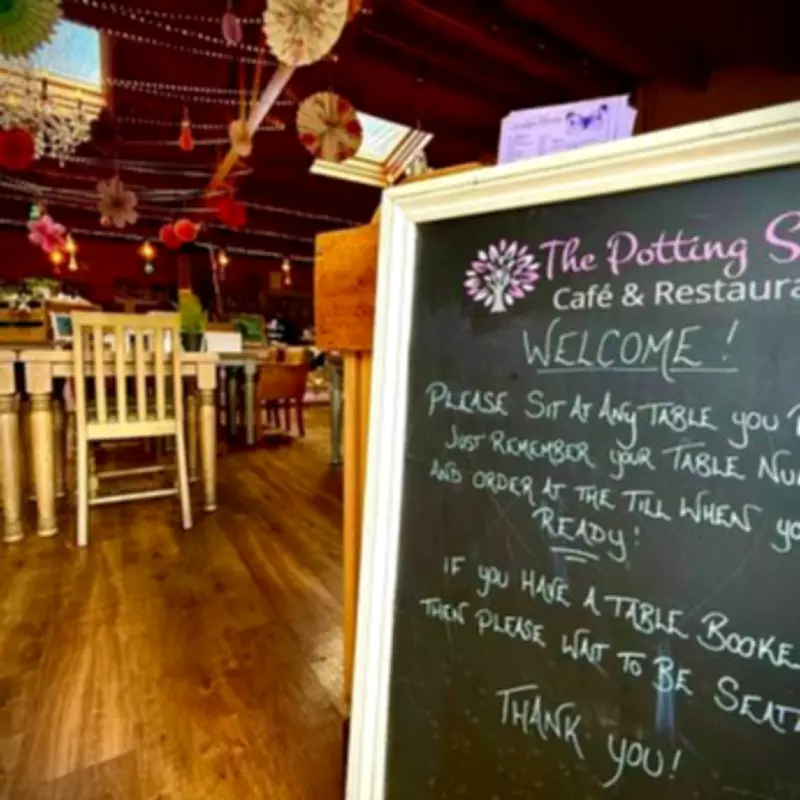 The Potting S
Café & Restaura
WELCOME!
PLEASE SIT AT ANY TABLE YOU
JUST REMEMBER YOUR TABLE NU
AND ORDER AT THE TILL WHEN YO
READY!
IF YOU HAVE A TABLE BOOKE
THEN PLEASE WAIT TO BE SEAT
THANK YOU!